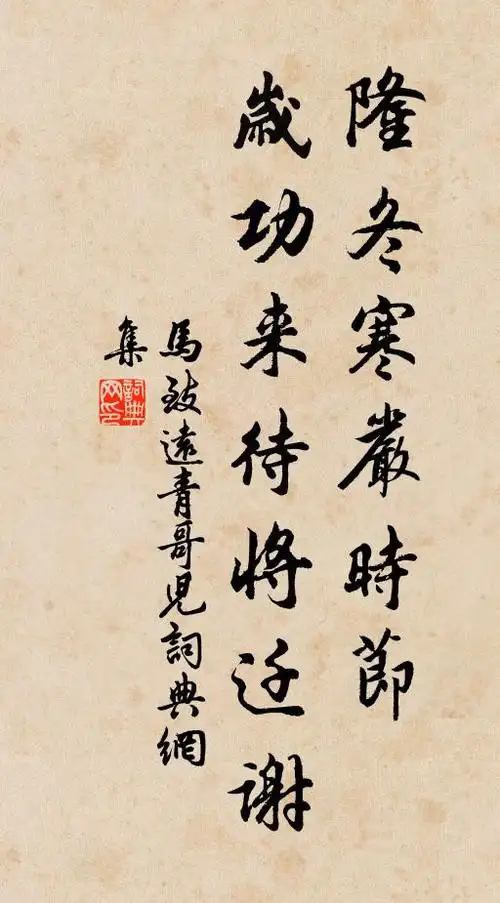 隆冬寒嚴時節
歲功来待將迁謝
馬致遠青哥兒詞典網
集
詞典网印